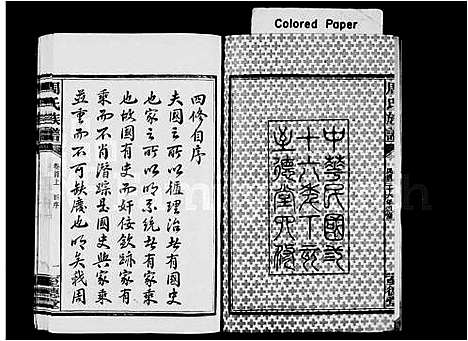 Colored Paper
周氏族譜
中華民國三
十六年丁亥
至德堂六修
周氏族譜
卷首上
四修自序
夫國之所以循理治者有國史
也家之所以明系統者有家乘
也故國有史而奸佞斂跡家有
乘而不肖潛踪是國史與家乘
並重而不可缺廢也明矣我周